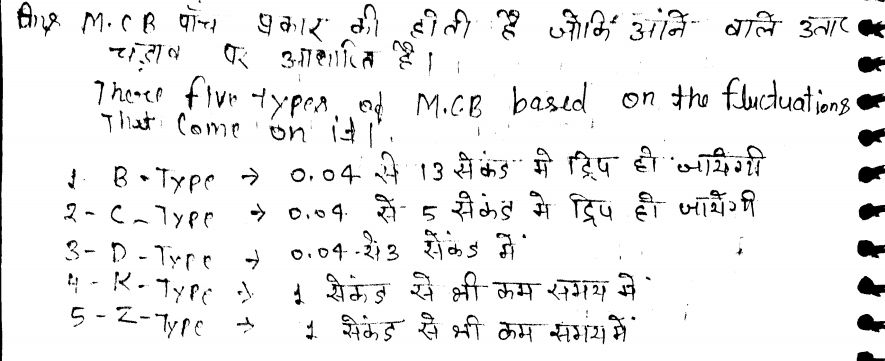 M.C.B पाँच प्रकार की होती है जोकि आंने वाले उतार
चढ़ाव पर आधारित है।
There five types of M.C.B based on the fluctuations
That Come on it।
1. B-Type → 0.04 से 13 सेकंड मे ट्रिप हो जायेगी
2- C-Type → 0.04 से 5 सेकंड मे ट्रिप हो जायेगी
3- D-Type → 0.04-से 3 सेकंड में
4- K-Type → 1 सेकंड से भी कम समय में
5-Z-Type → 1 सेकंड से भी कम समय में